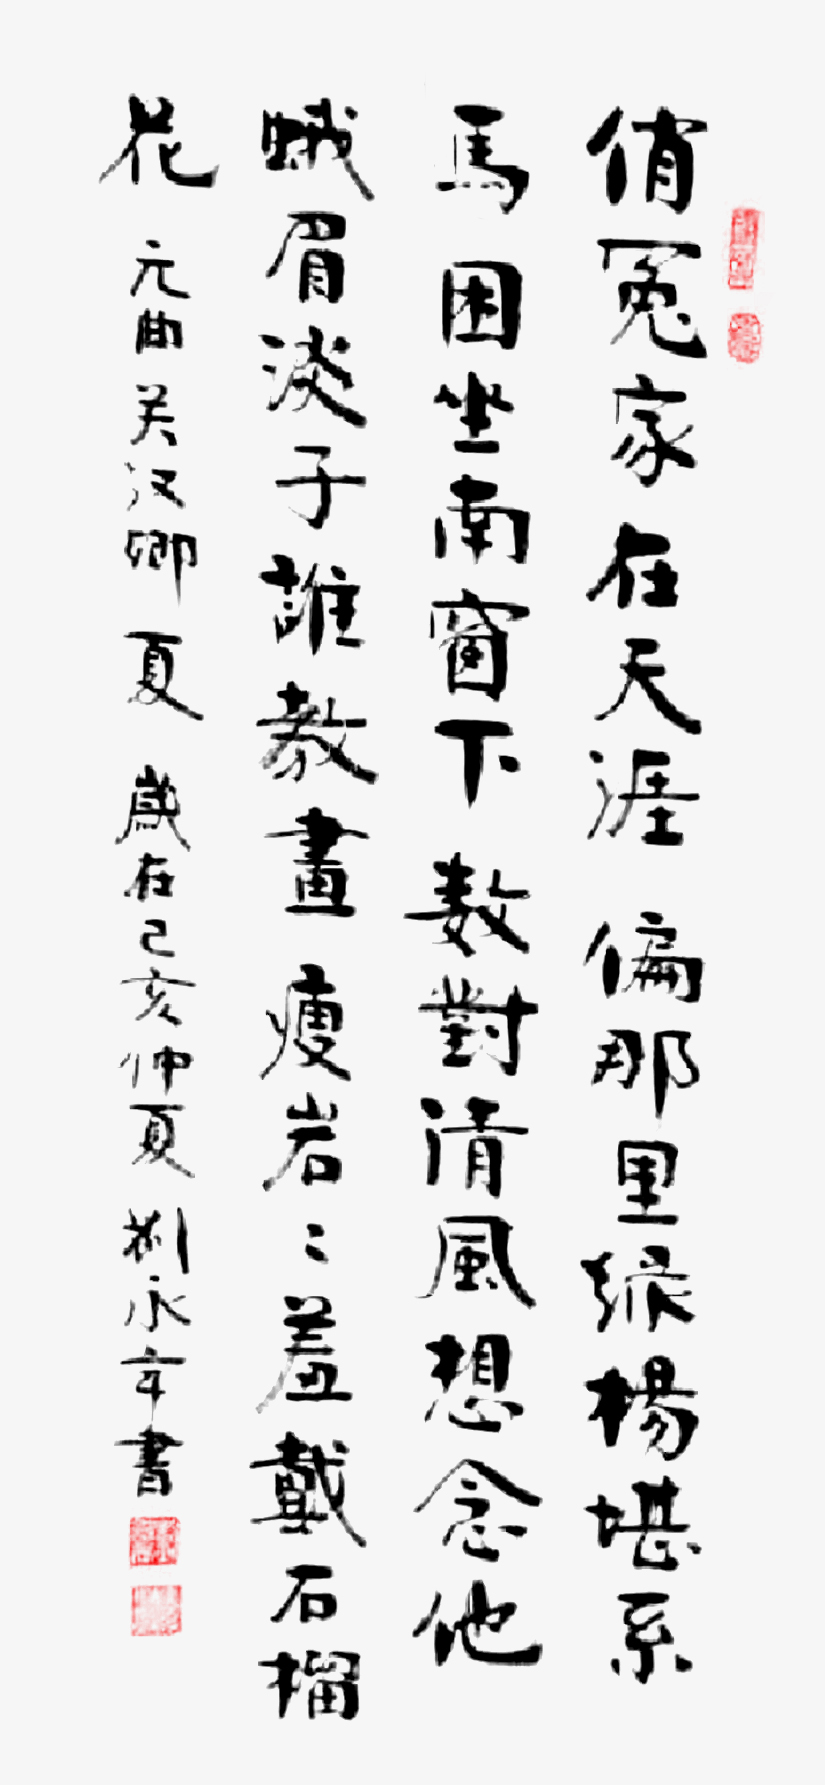 俏冤家在天涯偏那里緑楊堪系
馬困坐南窗下數對清風想念他
蛾眉淡了誰教畫瘦岩〻羞戴石榴
花元曲关汉卿夏歲在己亥仲夏劉永年書